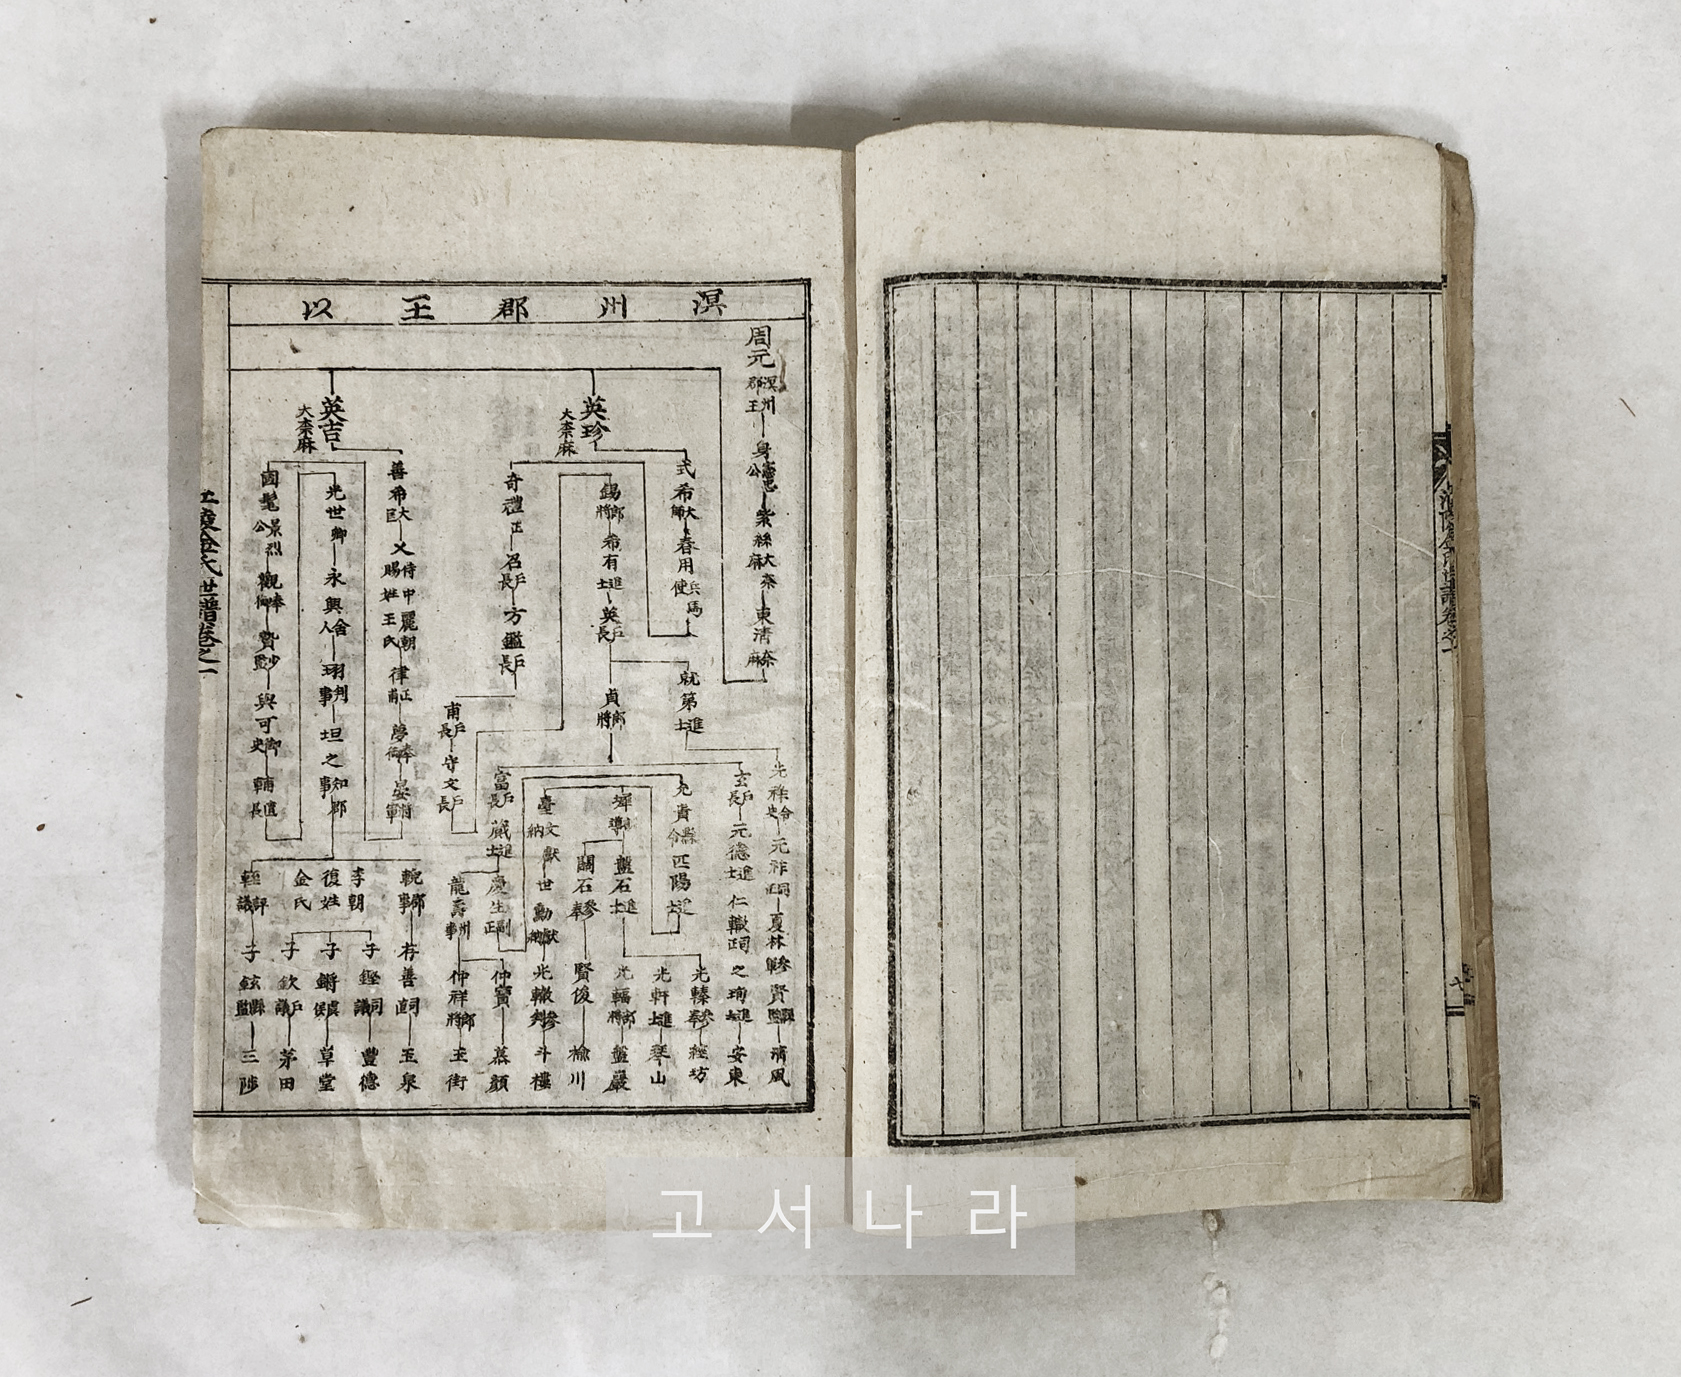 溟州郡王以
周元 溟州郡王
身
紫絲 大奈麻
東清 奈麻
英珍 大奈麻
式希 大師
春用 兵馬使
錫 郎將
希有 進士
英 戶長
就第 進士
貞 郎將
奇禮 正
召 戶長
方鑑 戶長
甫 戶長
守文 戶長
光祚 令史
元祚 同正
夏林 參軍
賢 縣監
清風
玄 戶長
元德 進士
仁轍 同正
之珣 進士
安東
允貴 縣令
匹陽 進士
盤石 進士
光軒 進士
琴山
光輻 郎將
盤巖
闢石 參奉
賢俊
榆川
臺 文獻納
世勳 獻納
光轍 參判
斗樓
富 戶長
葳 進士
慶生 副正
仲寶
慕顏
龍壽 州事
仲祥 郎將
玉街
英吉 大奈麻
善希 大匡
乂 侍中麗朝賜姓王氏
律 正甫
夢 奉御
晏 將軍
光世 卿
永興 舍人
珝 判事
坦之 知郡事
國髦 景烈公
觀 奉御
贇 少監
與可 御史
輔 直長
輗 郎事
存善 司直
玉泉
李朝復姓金氏
子鏗 司議
豐德
子鏘 虞候
草堂
子欽 戶議
茅田
軽 評議
子鉉 縣監
三陟
江陵金氏世譜卷之一
江陵金氏世譜卷之一
고서나라